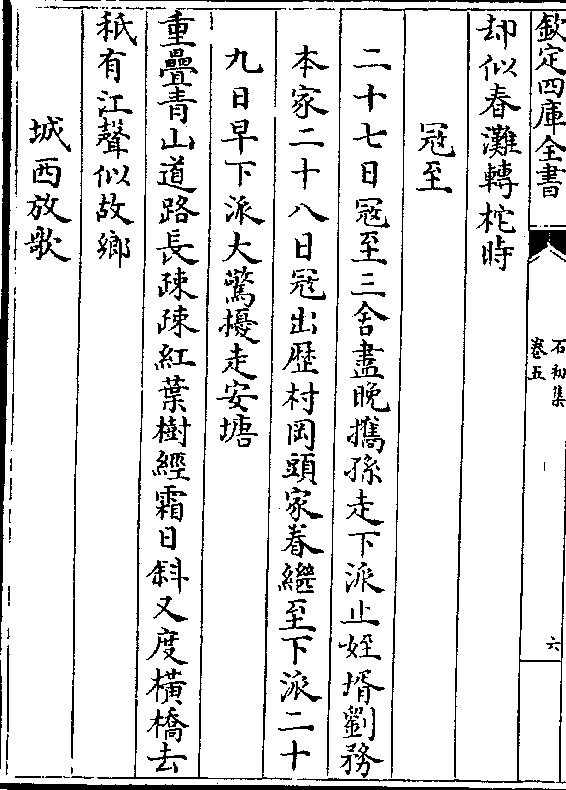 欽定四庫全書
石初集
卷五
六
却似春灘轉柁時
冦至
二十七日冦至三舍盡晚攜孫走下派止姪壻劉務
本家二十八日冦出歴村岡頭家眷繼至下派二十
九日早下派大驚擾走安塘
重疊青山道路長疎疎紅葉樹經霜日斜又度橫橋去
秖有江聲似故鄉
城西放歌